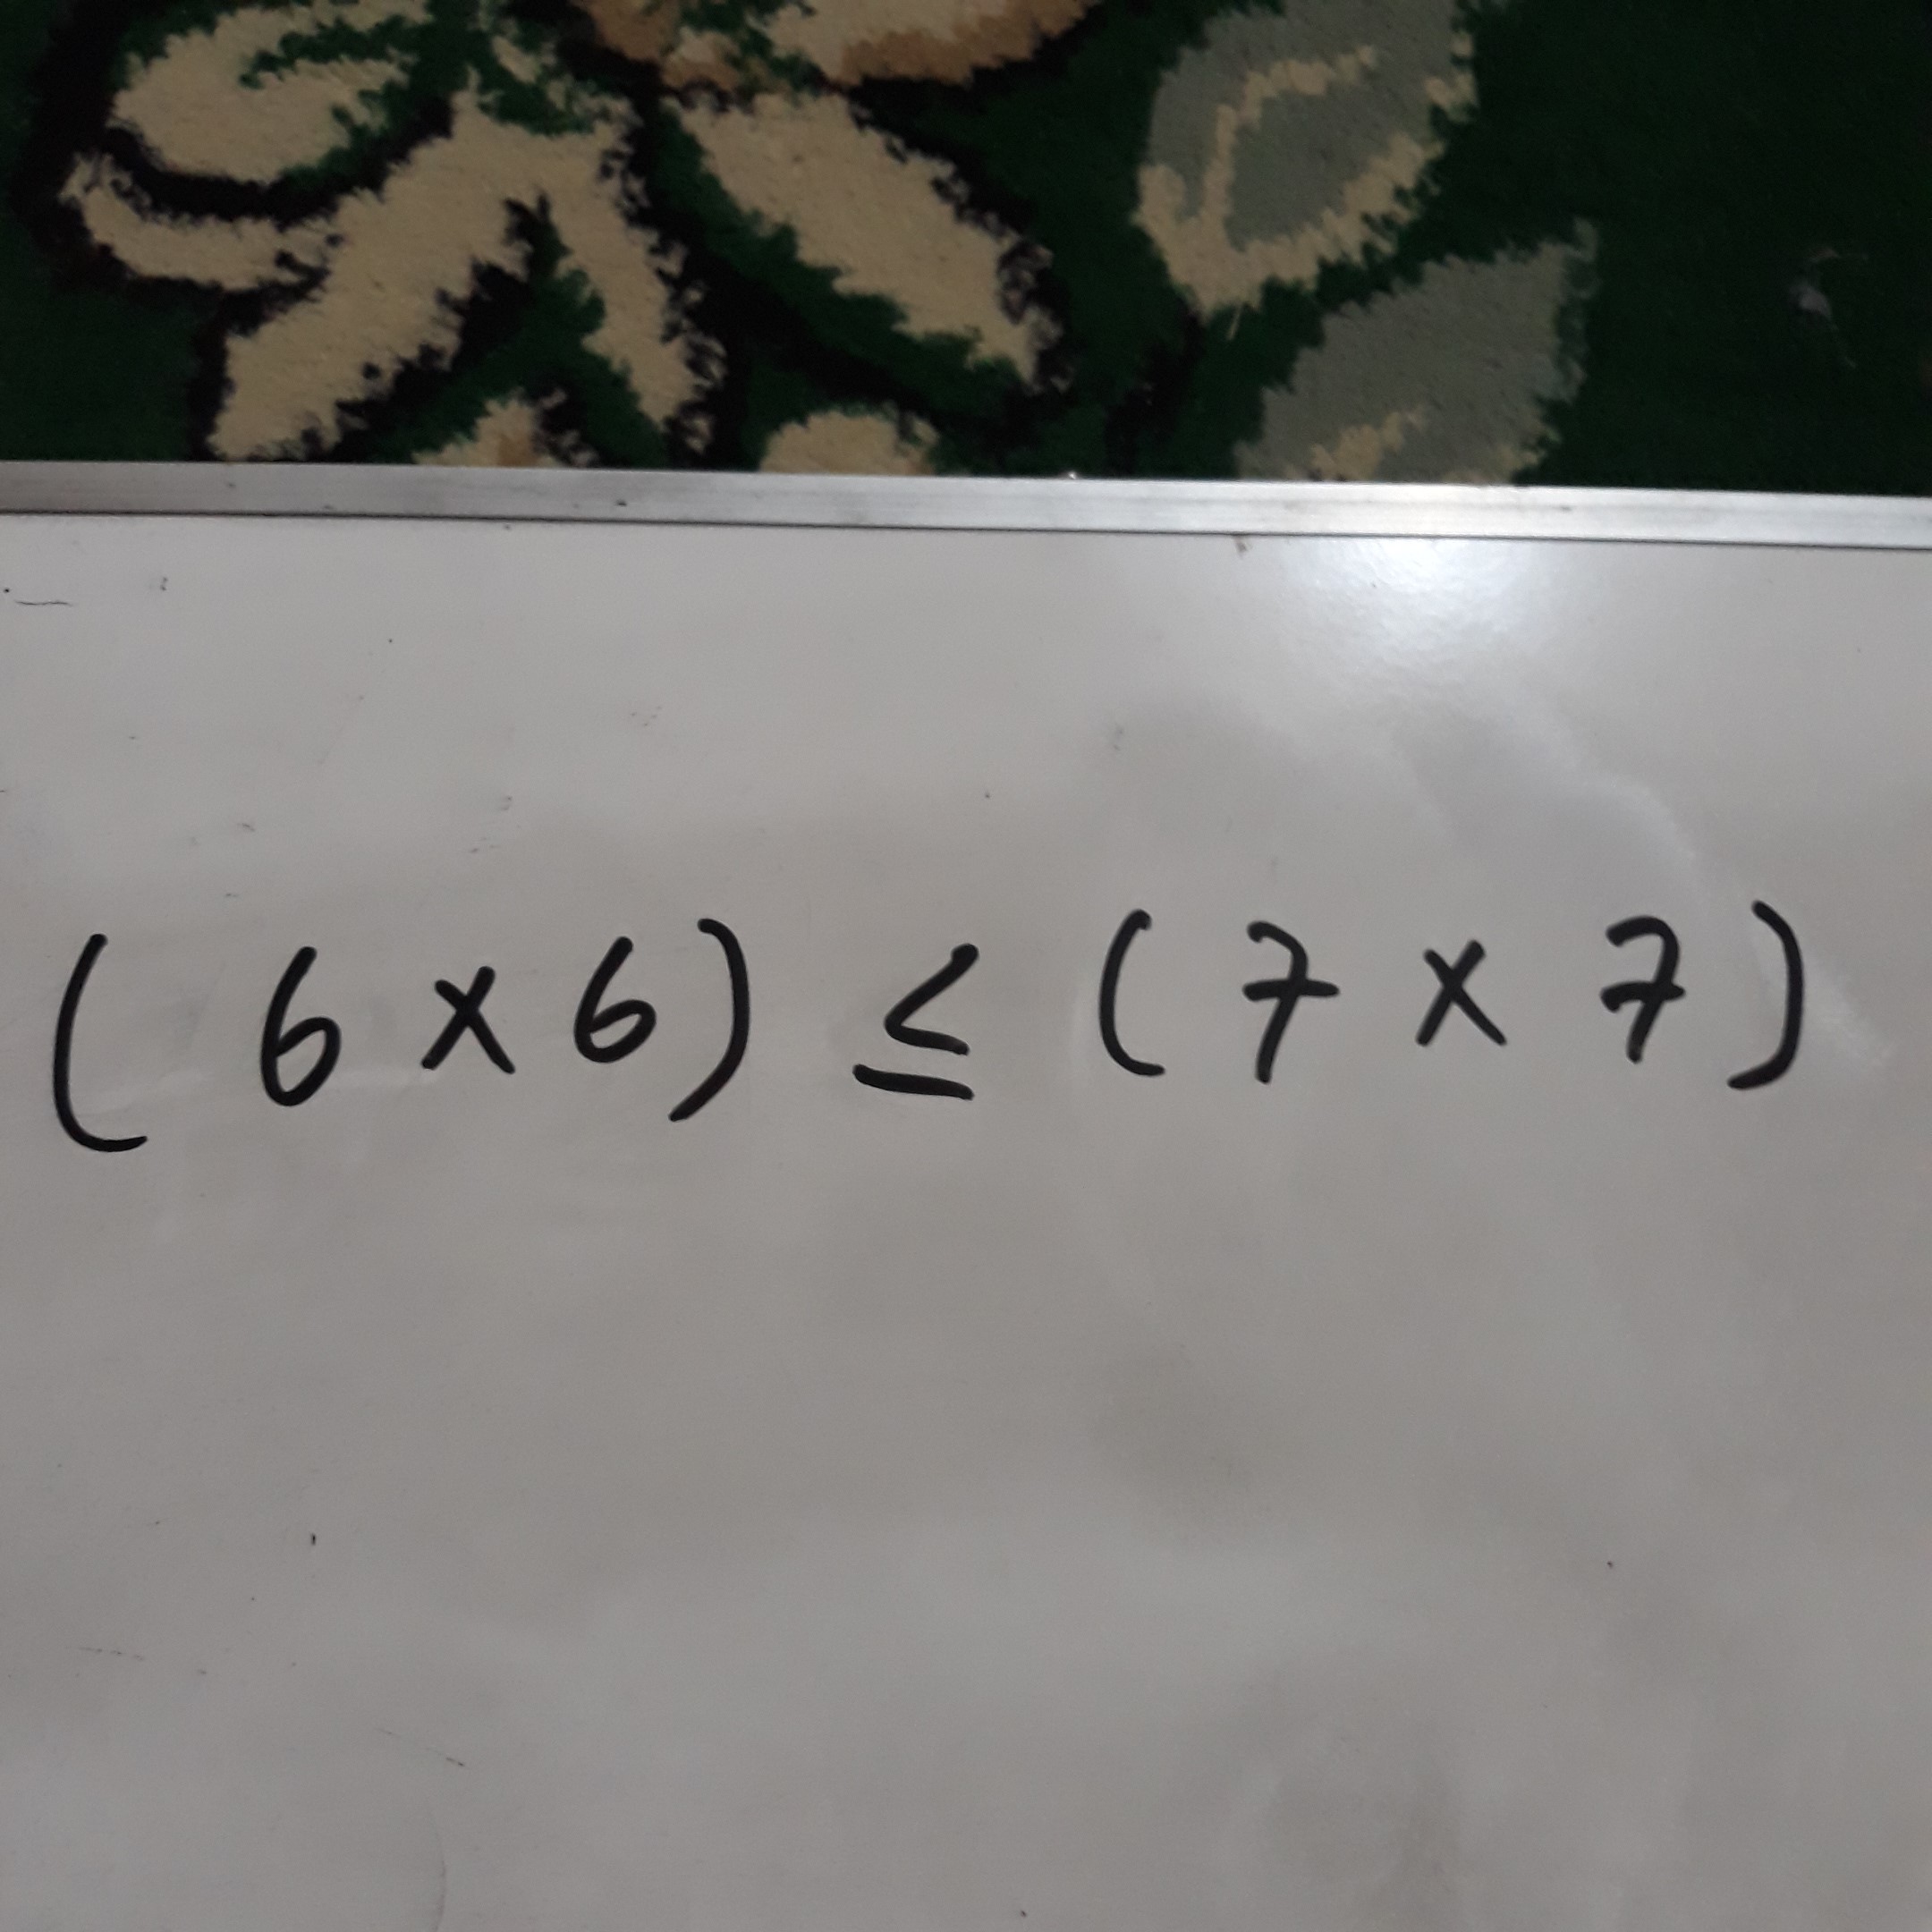 ( 6 × 6 ) ≤ ( 7 × 7 )